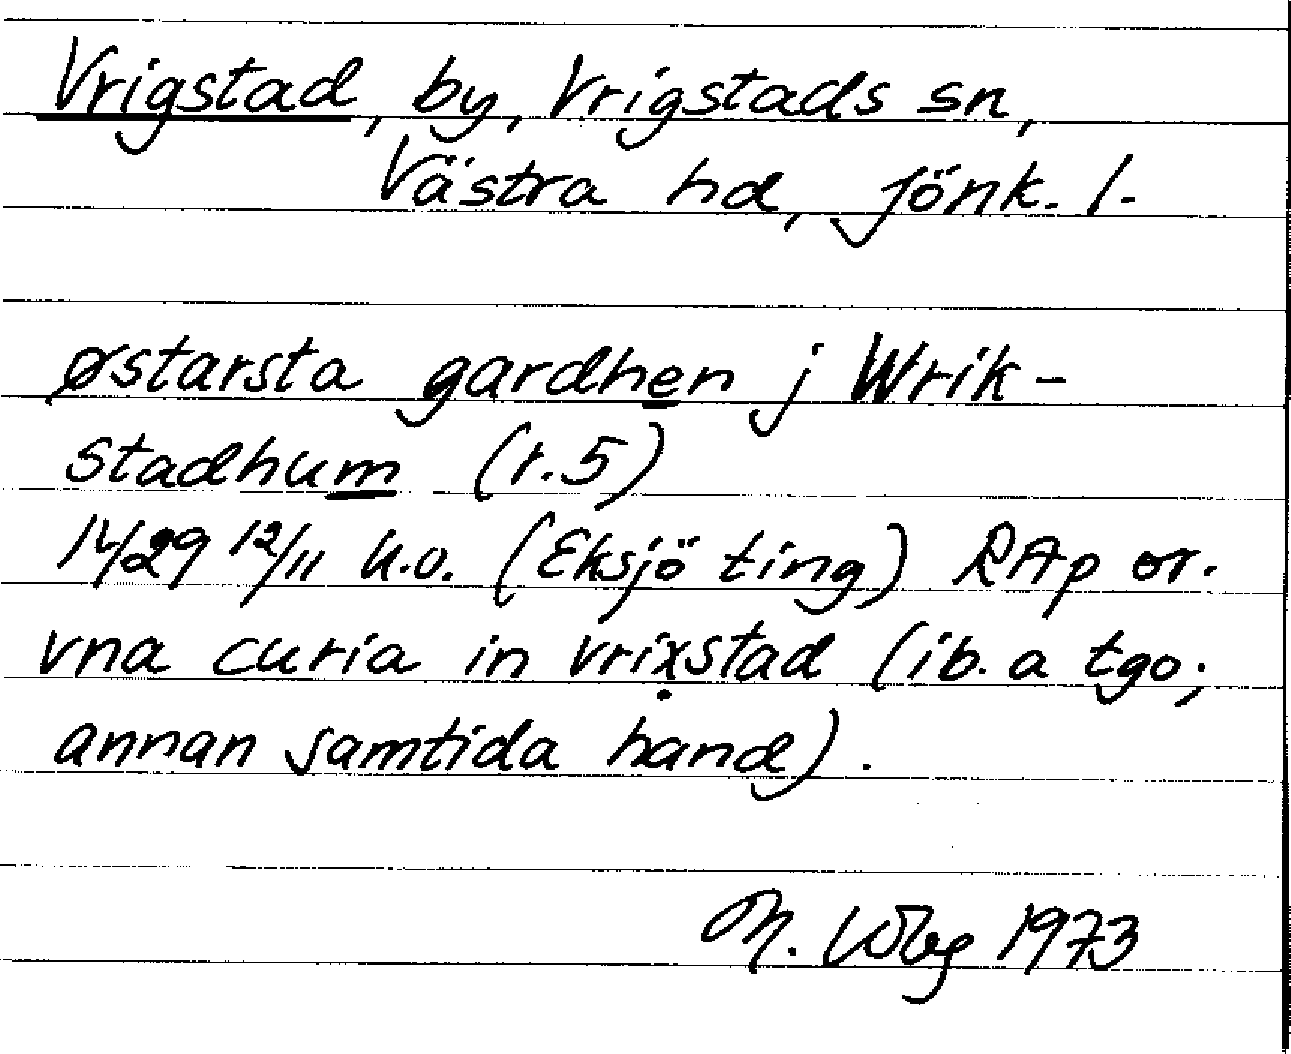 Vrigstad, by, Vrigstads sn,
Västra hd, Jönk. l.
østarsta gardhen j Wrik-
stadhum (r.5)
1429 12/11 u.o. (Eksjö ting) RAp or.
vna curia in vrixstad (ib. a tgo;
annan samtida hand).
M. Wbg 1973